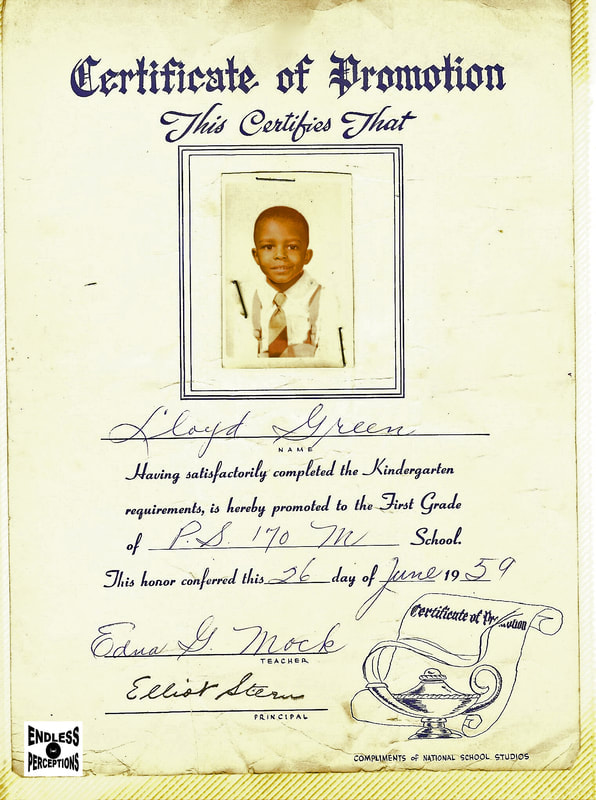 Certificate of Promotion
This Certifies That
Lloyd Green
NAME
Having satisfactorily completed the Kindergarten
requirements, is hereby promoted to the First Grade
of P.S. 170 M School.
This honor conferred this 26 day of June 1959
Certificate of Pr...ution
Edna G. Mock
TEACHER
Elliot Stern
PRINCIPAL
ENDLESS
PERCEPTIONS
COMPLIMENTS OF NATIONAL SCHOOL STUDIOS